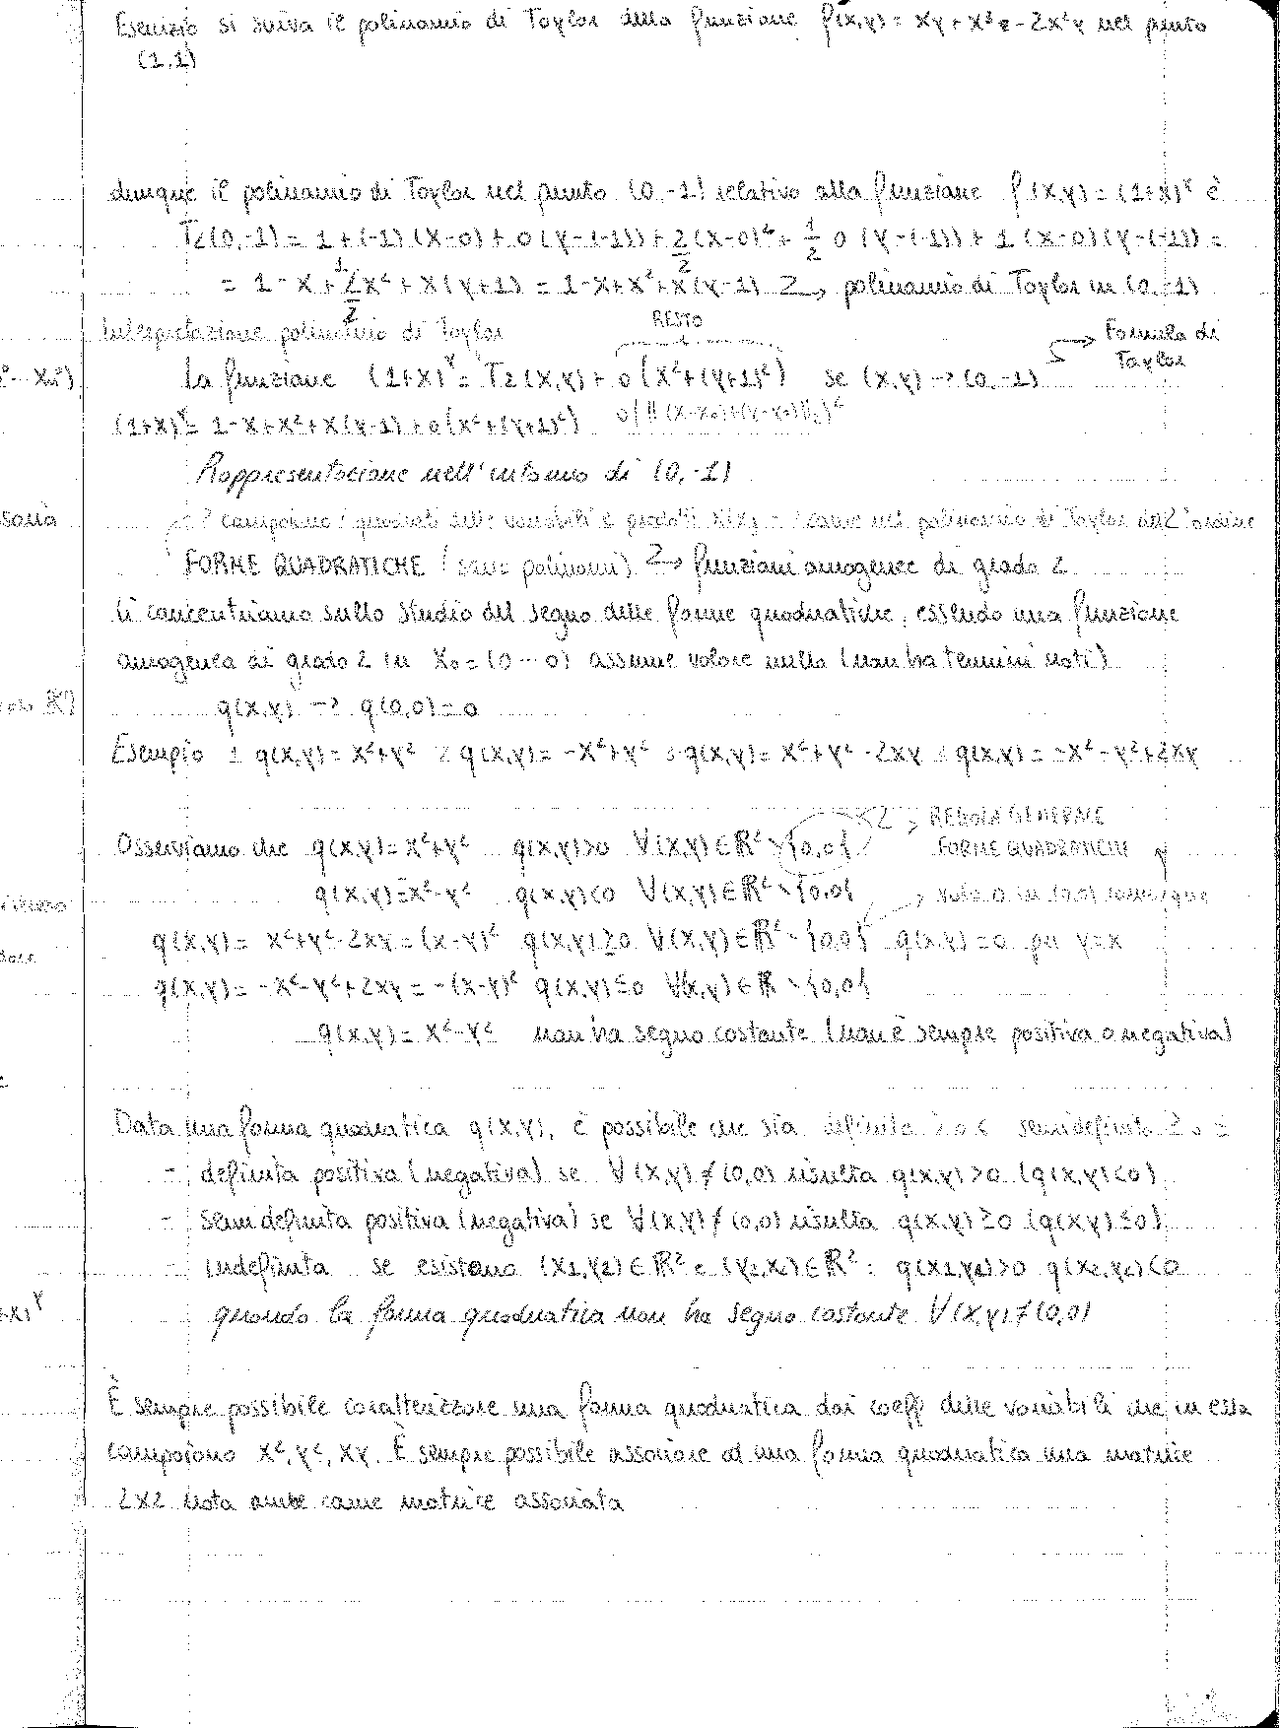 Esercizio si scriva il polinomio di Taylor della funzione f(x,y) = xy + x³ - 2x²y nel punto
(1,1)
dunque il polinomio di Taylor nel punto (0,-1) relativo alla funzione f(x,y) = (1+x)^y è
T2(0,-1) = 1 + (-1)(x-0) + 0(y-(-1)) + 2/2 (x-0)² + 1/2 0 (y-(-1)) + 1 (x-0)(y-(-1)) =
= 1 - x + 1/2 2x² + x(y+1) = 1-x+x²+x(y-1) → polinomio di Taylor in (0,-1)
Interpretazione polinomio di Taylor
RESTO
Formula di
Taylor
La funzione (1+x)^y = T2(x,y) + o(x²+(y+1)²) se (x,y) → (0,-1)
(1+x)^y = 1-x+x²+x(y-1) + o(x²+(y+1)²)
Rappresentazione nell'intorno di (0,-1)
compaiono i quadrati delle variabili e prodotti come nel polinomio di Taylor ordine
FORME QUADRATICHE (sono polinomi) → funzioni omogenee di grado 2
Ci concentriamo sullo studio del segno delle forme quadratiche, essendo una funzione
omogenea di grado 2 in x0=(0...0) assume valore nullo (non ha termini noti)
q(x,y) → q(0,0)=0
Esempio 1 q(x,y)= x²+y² 2 q(x,y)= -x²+y² 3 q(x,y)= x²+y²-2xy 4 q(x,y)= -x²-y²+2xy
REGOLA GENERALE
FORME QUADRATICHE
Osserviamo che q(x,y)=x²+y² q(x,y)>0 ∀(x,y)∈ℝ²\{0,0}
q(x,y)=x²-y² q(x,y)<0 ∀(x,y)∈ℝ²\{0,0} → vale 0 in (0,0) comunque
q(x,y)= x²+y²-2xy=(x-y)² q(x,y)≥0 ∀(x,y)∈ℝ²\{0,0} q(x,y)=0 per y=x
q(x,y)= -x²-y²+2xy = -(x-y)² q(x,y)≤0 ∀(x,y)∈ℝ\{0,0}
q(x,y)= x²-y² non ha segno costante (non è sempre positiva o negativa)
Data una forma quadratica q(x,y), è possibile che sia definita > o < semidefinita ≥ o ≤
- definita positiva (negativa) se ∀(x,y)≠(0,0) risulta q(x,y)>0 (q(x,y)<0)
- semidefinita positiva (negativa) se ∀(x,y)≠(0,0) risulta q(x,y)≥0 (q(x,y)≤0)
- indefinita se esistono (x1,y2)∈ℝ² e (y2,x2)∈ℝ²: q(x1,y1)>0 q(x2,y2)<0
quando la forma quadratica non ha segno costante ∀(x,y)≠(0,0)
È sempre possibile caratterizzare una forma quadratica dai coeff delle variabili che in essa
compaiono x²,y²,xy. È sempre possibile associare ad una forma quadratica una matrice
2x2 nota anche come matrice associata